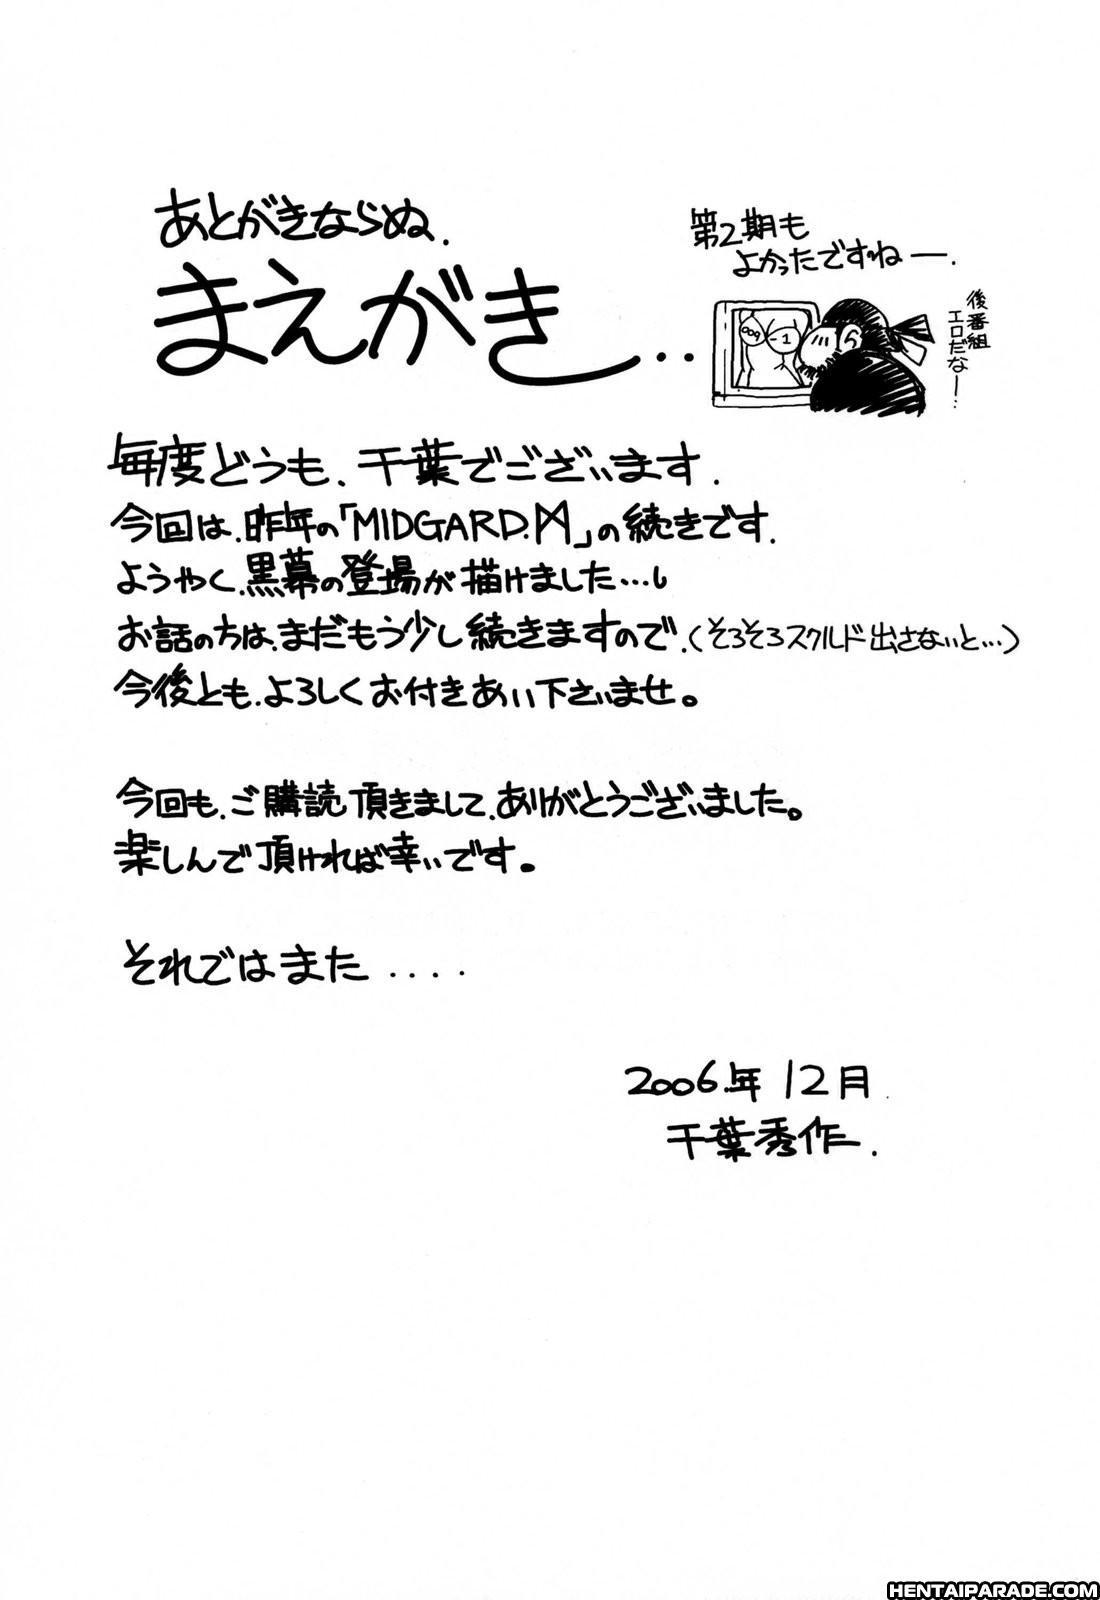 あとがきならぬ.
まえがき...
第2期も
よかったですねー.
後番組
エロだなー...
009
-1
毎度どうも、千葉でございます.
今回は、昨年の「MIDGARD.M」の続きです.
ようやく、黒幕の登場が描けました…し
お話の方は、まだもう少し続きますので、(そろそろスクルド出さないと…)
今後とも、よろしくお付きあい下さいませ。
今回も、ご購読頂きまして、ありがとうございました。
楽しんで頂ければ幸いです。
それではまた....
2006.年 12月
千葉秀作.
HENTAIPARADE.COM